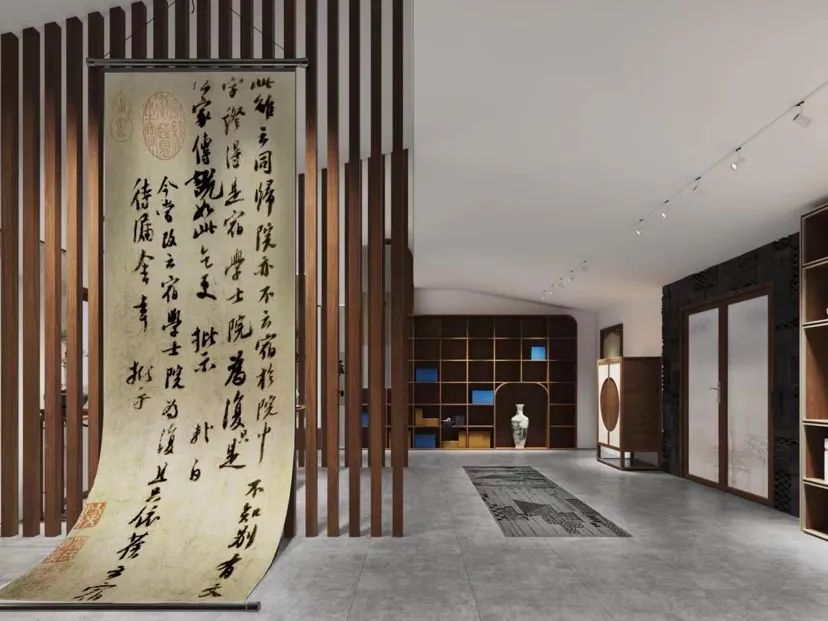 此雖云同歸院亦不云宿於院中不知別有文
字證得是宿學士院為復只是
公家傳說如此乞更批示 白
今當改云宿學士院為復且只依舊云宿
待漏舍幸批示